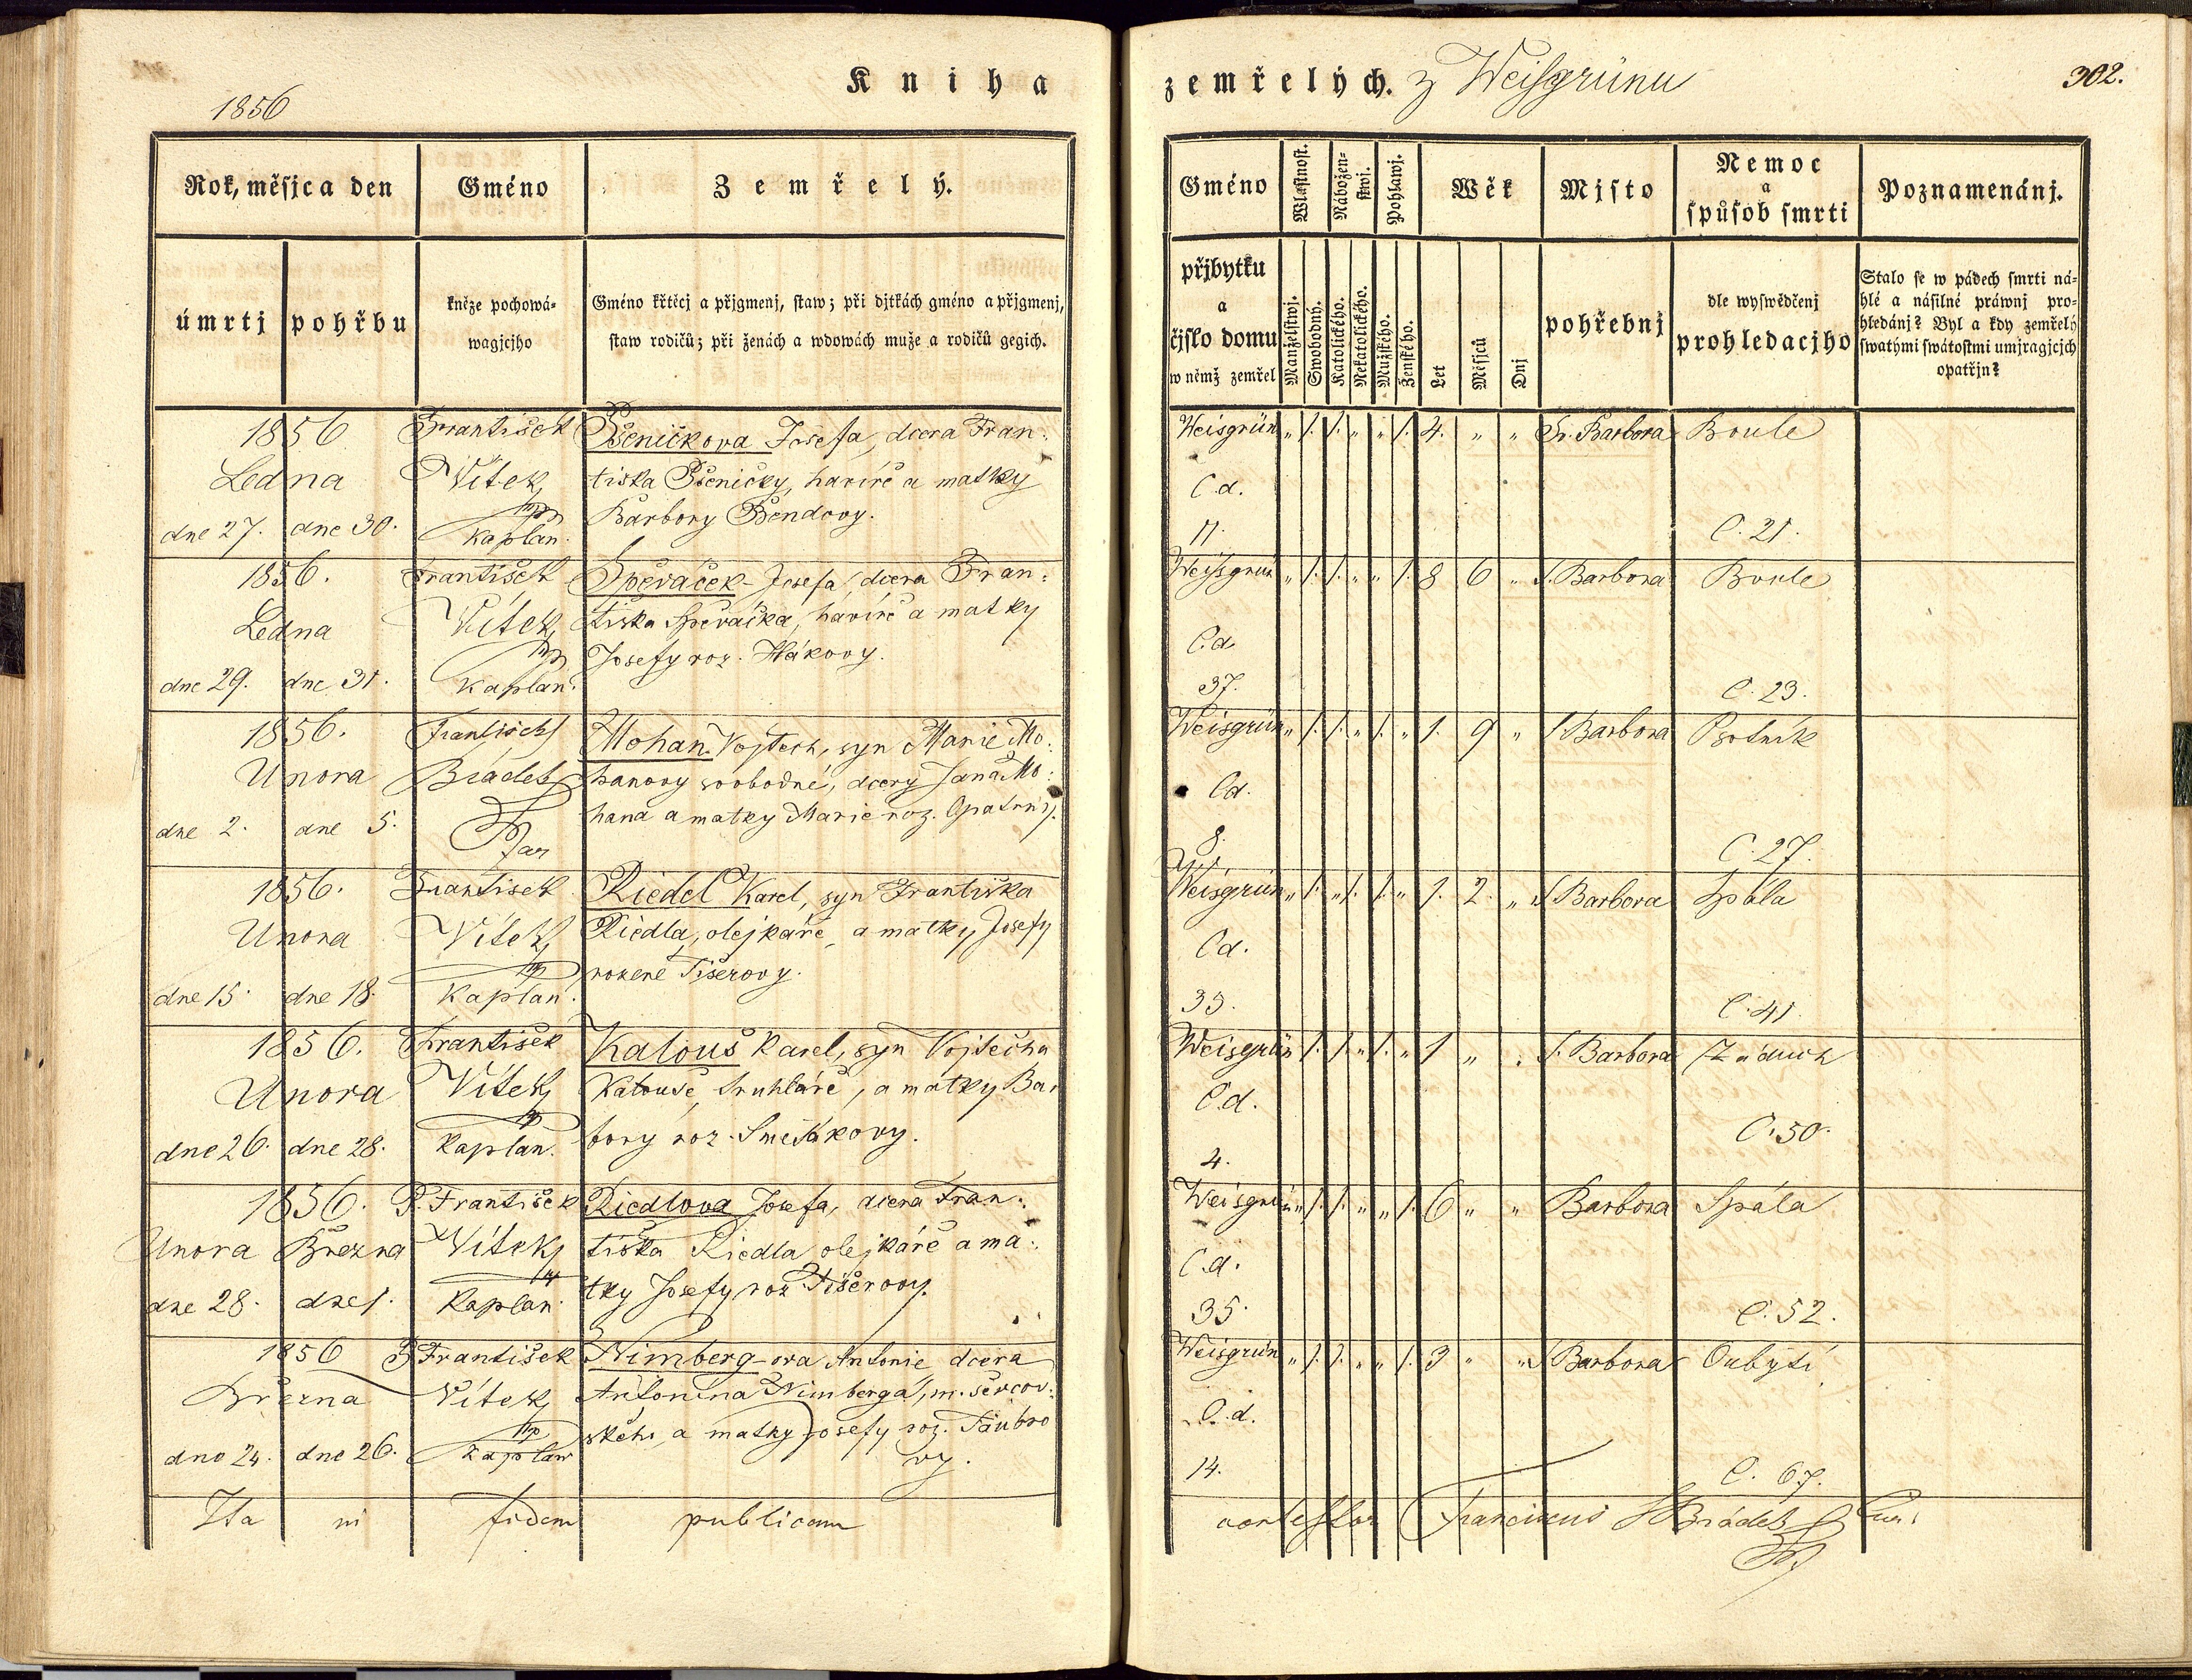 1856
Kniha
zemřelých. z Weisgrünu
302.
Rok, měsjca den
Gméno
Zemřelý.
úmrtj
pohřbu
kněze pochowá-
wagjcjho
Gméno křtěcj a přjgmenj, staw; při djtkách gméno a přjgmenj,
staw rodičů; při ženách a wdowách muže a rodičů gegich.
Gméno
Wlastnost.
Nábožen-
stwj.
Pohlawj.
Wěk
Mjsto
Nemoc
a
spůsob smrti
Poznamenánj.
přjbytku
a
čjslo domu
w němž zemřel
Manželstwj.
Swobodný.
Katolického.
Nekatolického.
Mužského.
Ženského.
Let
Měsjců
Dnj
pohřebnj
dle wyswědčenj
prohledacjho
Stalo se w pádech smrti ná-
hlé a násilné práwnj pro-
hledánj? Byl a kdy zemřelý
swatými swátostmi umjragjcjch
opatřjn?
1856 František Pšeničkova Josefa, dcera Fran-
Ledna Vítek tiška Pšeničky, havíře a matky
dne 27. dne 30. Kaplan. Barbory Bendovy.
Weisgrün " 1. 1. " " 1. 4. " " Sv. Barbora Boule
C.d.
11. C. 21.
1856. František Spěváček Josefa, dcera Fran:
Ledna Vítek tiška Spěváčka, havíře a matky
Josefy roz. Hákovy.
dne 29. dne 31. Kaplan.
Weisgrün " 1. 1. " " 1. 8 6 " S. Barbora Boule
C.d.
37. C. 23.
1856. František Mohan Vojtěch, syn Marie Mo:
Února Brádek hanovy svobodné, dcery Jana Mo:
dne 2. dne 5. Far hana a matky Marie roz. Opatrný.
Weisgrün " 1. 1. " 1. " 1. 9 " S Barbora Psotník
Cd.
8. C. 27.
1856. František Riedel Karel, syn Františka
Února Vítek Riedla, olejkáře, a matky Josefy
rozené Tišerovy.
dne 15. dne 18. Kaplan.
Weisgrün " 1. " 1. 1. " 1. 2. " S Barbora Spála
Cd.
35. C. 41.
1856. František Kalouš Karel, syn Vojtěcha
Února Vítek Kalouše, truhláře, a matky Bar
dne 26. dne 28. Kaplan. bory roz.
Weisgrün " 1. 1. " 1. " 1 " . S. Barbora Záduch
C.d.
4. C. 50.
1856. P. František Riedlova Josefa, dcera Fran:
Února Března Vítek tiška Riedla olejkáře a ma:
dne 28. dne 1. Kaplan. tky Josefy roz Tišerovy.
Weisgrün " 1. 1. " " 1. 6 " " Barbora Spála
C.d.
35. C. 52.
1856 P František Nimberg-ova Antonie dcera
Března Vítek Antonína Nimberga, m. ševcov:
dne 24. dne 26. Kaplan ského a matky Josefy roz. Täubro
vy.
Weisgrün " 1. 1. " " 1. 3 " " S Barbora Oubytí
C.d.
14. C. 67.
Ita in fidem publicam
contestor Franciscus Brádek